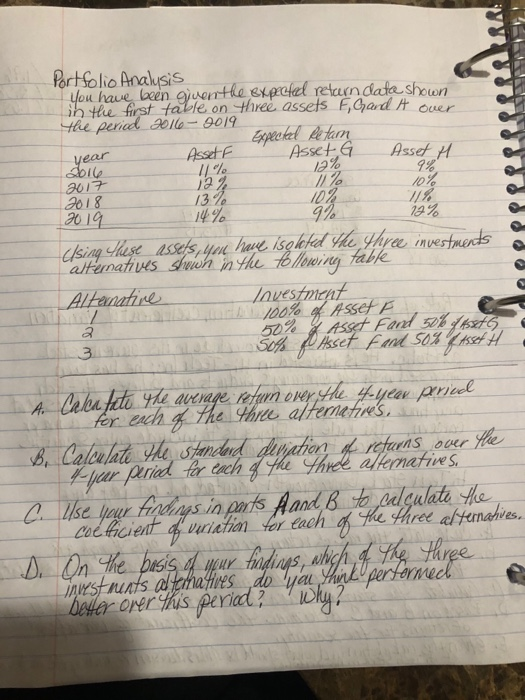 Portfolio Analysis
You have been given the expected return data shown
in the first table on three assets F, G and H over
the period 2016 - 2019
Expected Return
year Asset F Asset G Asset H
2016 11% 12% 9%
2017 12% 11% 10%
2018 13% 10% 11%
2019 14% 9% 12%
Using these assets, you have isolated the three investments
alternatives shown in the following table
Alternative Investment
1 100% of Asset F
2 50% of Asset F and 50% of Asset G
3 50% of Asset F and 50% of Asset H
A. Calculate the average return over the 4-year period
for each of the three alternatives.
B. Calculate the standard deviation of returns over the
4-year period for each of the three alternatives.
C. Use your findings in parts A and B to calculate the
coefficient of variation for each of the three alternatives.
D. On the basis of your findings, which of the three
investments alternatives do you think performed
better over this period? Why?